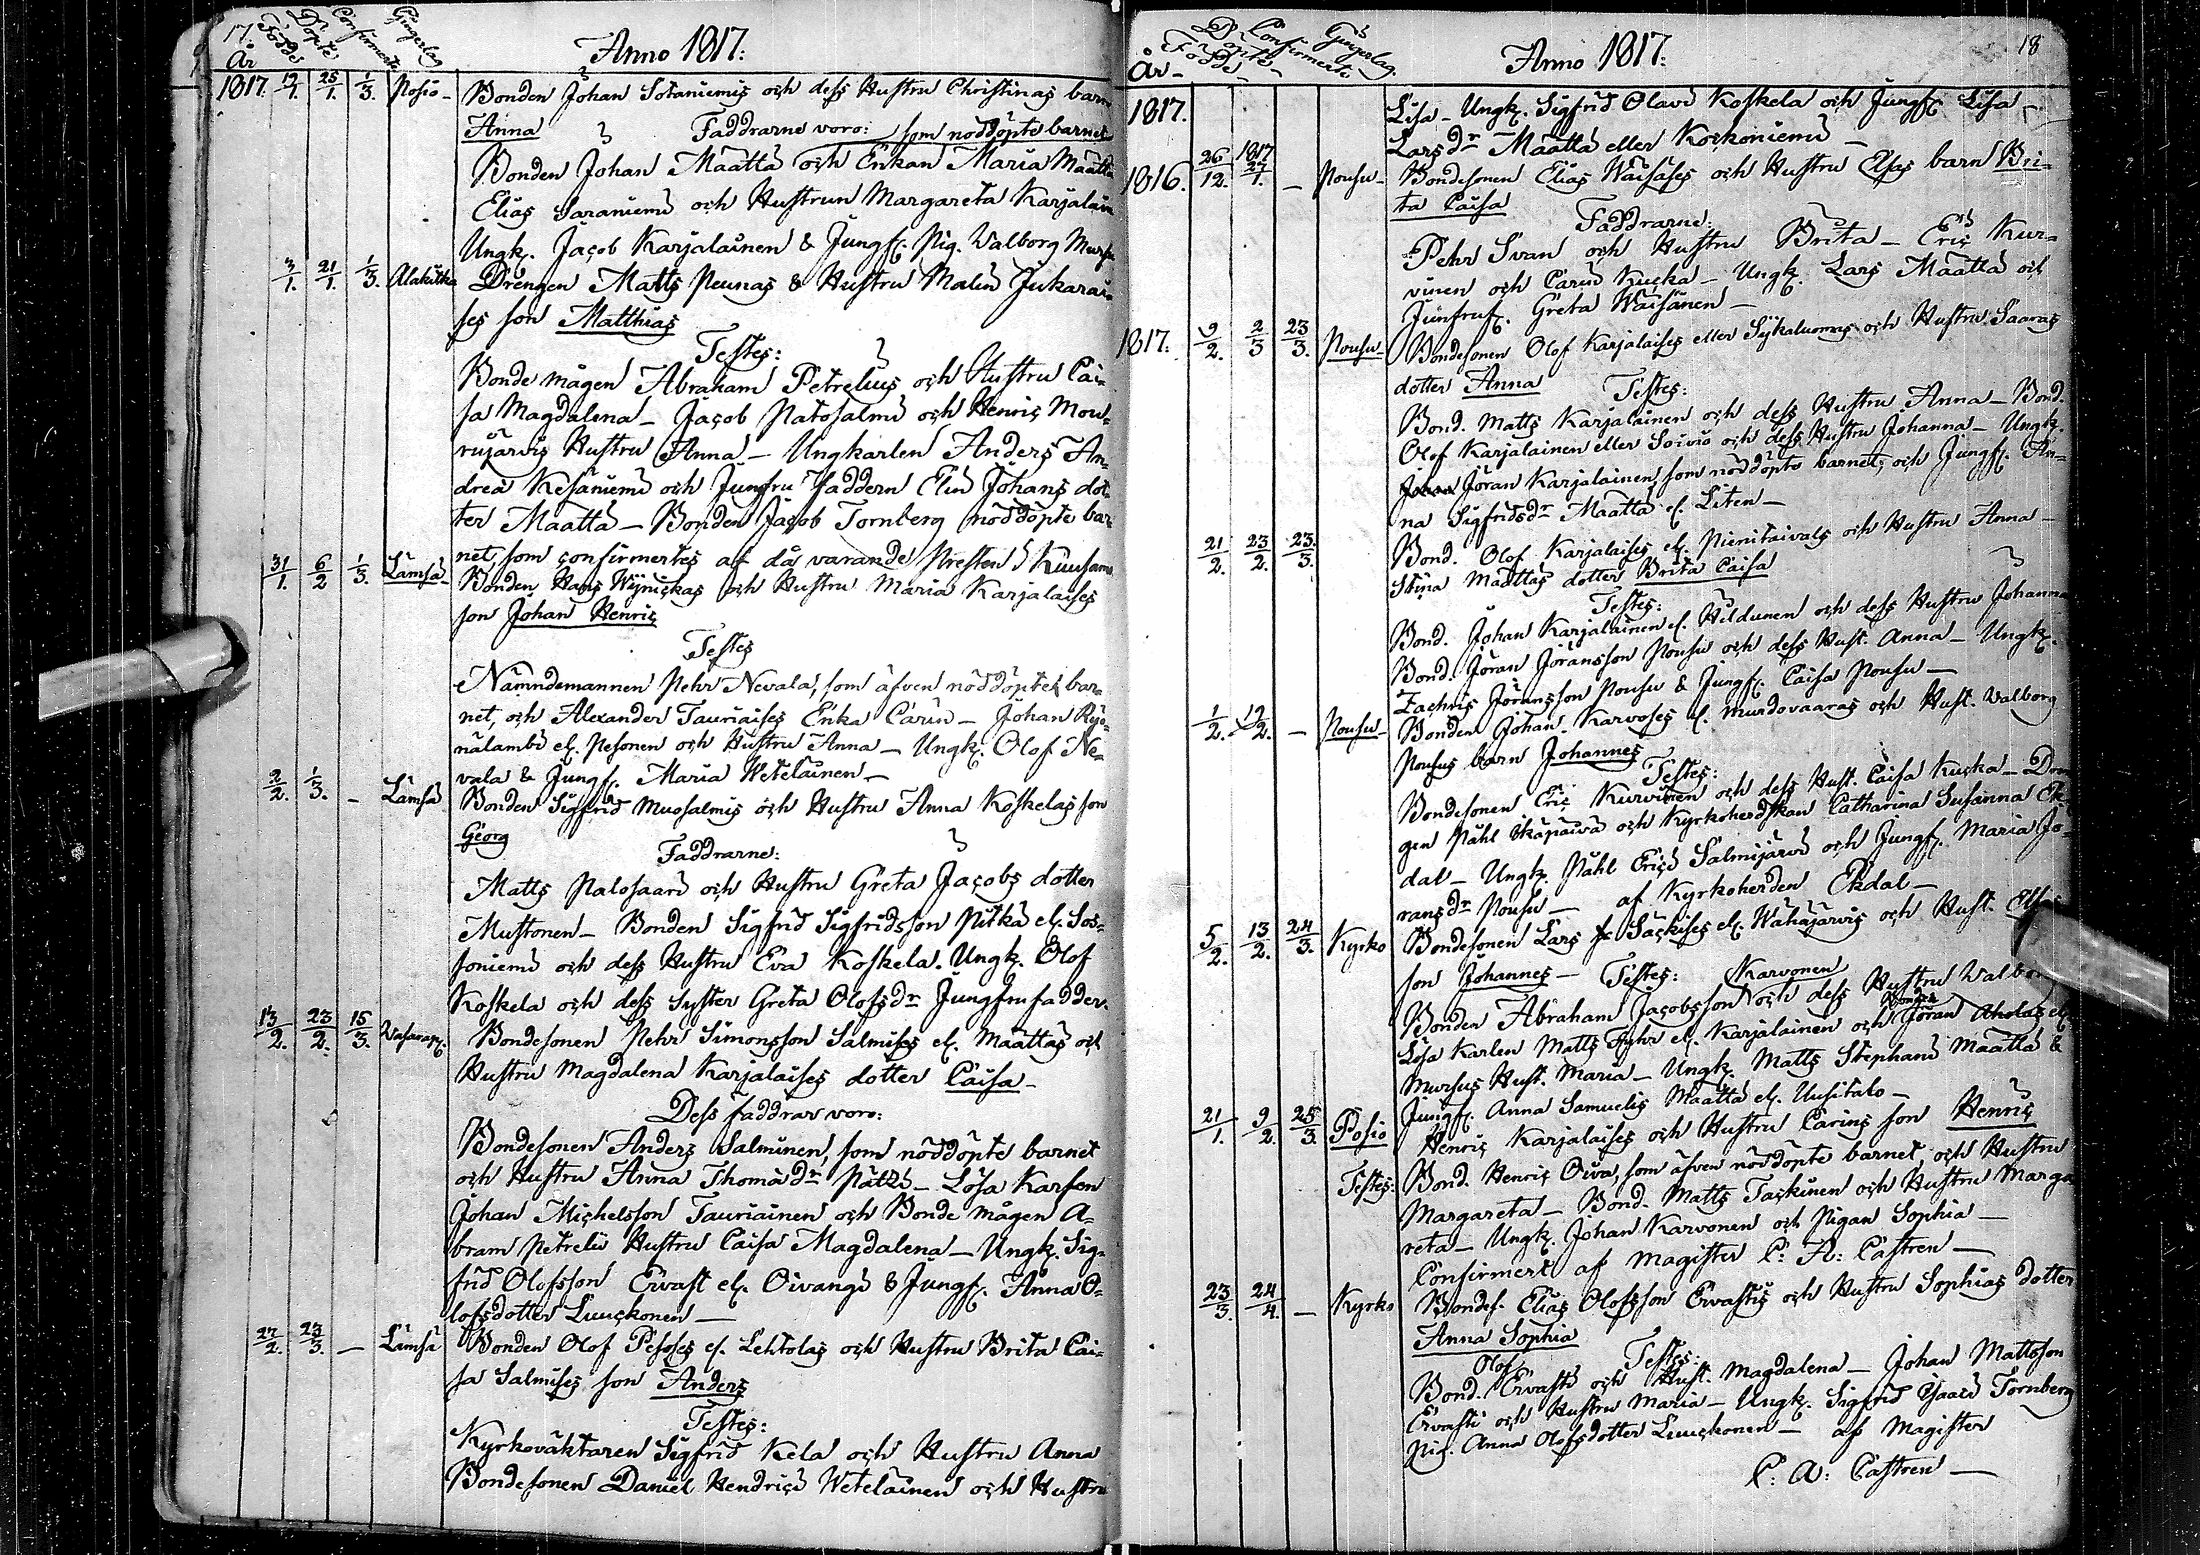 17.
År
Födde
Döpte
Confirmerte
Gingerlag
Anno 1817:
1817. 12/1. 25/1. 1/3. Posio - Bonden Johan Sotaniemis och dess Hustru Christinas barn
Anna Faddrarne voro: som nöddöpte barnet
Bonden Johan Määttä och Enkan Maria Määttä
Elias Saraniemi och Hustrun Margareta Karjalain
Ungk. Jacob Karjalainen & Jungf. Pig. Walborg Mursu
3/1. 21/1. 1/3. Alakitka Drengen Matts Peunas & Hustru Malin Jukarai-
ses son Matthias
Testes:
Bonde mågen Abraham Petrelius och Hustru Cai-
sa Magdalena - Jacob Patosalmi och Henric Mou-
rujärvis Hustru Anna - Ungkarlen Anders An-
drea Kesäniemi och Jungfru Faddern Elin Johans dot-
ter Määttä - Bonden Jacob Tornberg nöddöpte bar-
net, som confirmertes af då varande Presten i Kuusamo
31/1. 6/2 1/3. Lämsä - Bonden Hans Wijnickas och Hustru Maria Karjalaises
son Johan Henric
Testes
Nämndemannen Pehr Nevala, som äfven nöddöptes bar-
net, och Alexander Tauriaises Enka Carin - Johan Kyö-
nälambi el. Pesonen och Hustru Anna - Ungk. Olof Ne-
vala & Jungf. Maria Wetelainen -
2/2. 1/3. - Lämsä Bonden Sigfrid Muosalmis och Hustru Anna Koskelas son
Georg
Faddrarne:
Matts Palosaari och Hustru Greta Jacobs dotter
Mustonen - Bonden Sigfrid Sigfridsson Pitkä el. Sos-
soniemi och dess Hustru Eva Koskela. Ungk. Olof
Koskela och dess syster Greta Olofsdr Jungfrufadder.
13/2. 23/2. 15/3. Vasarap. Bondesonen Pehr Simonsson Salmises el. Määttäs och
Hustru Magdalena Karjalaises dotter Caisa -
Dess faddrar voro:
Bondesonen Anders Salminen, som nöddöpte barnet
och Hustru Anna Thomä dr Pätsi - Lösa Karlen
Johan Michelsson Tauriainen och Bonde mågen A-
bram Petrelii Hustru Caisa Magdalena - Ungk. Sig-
frid Olofsson Ervast el. Oivangi & Jungf. Anna O-
lofsdotter Luuckonen -
22/2. 23/3. - Lämsä Bonden Olof Pesoses el. Lehtolas och Hustru Brita Cai-
sa Salmises son Anders
Testes:
Kyrkoväktaren Sigfrid Kela och Hustru Anna
Bondesonen Daniel Hendrici Wetelainen och Hustru
18
År -
Födde -
Döpte -
Confirmerte
Gingerlag.
Anno 1817:
1817. Lisa - Ungk. Sigfrid Olavi Koskela och Jungf. Lisa -
Lars dr Määttä eller Korkoniemi -
1816. 26/12. 1817 27/1. - Pousu - Bondesonen Elias Wäisäses och Hustru Elsas barn Bri-
ta Caisa
Faddrarne:
Pehr Svan och Hustru Brita - Eric Kur-
vinen och Carin Kucka - Ungk. Lars Määttä och
Junfruf. Greta Wäisänen -
1817. 9/2. 2/3 23/3. Pousu - Bondesonen Olof Karjalaises eller Sykaluomas och Hustru Saaras
dotter Anna Testes:
Bond. Matts Karjalainen och dess Hustru Anna - Bond.
Olof Karjalainen eller Soivio och dess Hustru Johanna - Ungk.
Johan Jöran Karjalainen, som nöddöpte barnet, och Jungf. An-
na Sigfridsdr Määttä el. Liten -
21/2. 23/2. 23/3. Bond. Olof Karjalaises el. Pienitaivals och Hustru Anna -
Stina Määttäs dotter Brita Caisa
Testes:
Bond. Johan Karjalainen el. Hildunen och dess Hustru Johanna
Bond. Jöran Jöransson Pousu och dess Hust. Anna - Ungk.
Zachris Jöransson Pousu & Jungf. Caisa Pousu -
1/2. 12/2. - Pousu - Bonden Johan Karvoses el. Murdovaaras och Hust. Walborg
Pousus barn Johannes
Testes:
Bondesonen Eric Kurvinen och dess Hust. Caisa Kucka - Dren
gen Påhl Ikäpäivä och Kyrkoherdskan Catharina Susanna Ek
dal - Ungk. Påhl Erici Salmijärvi och Jungf. Maria Jö-
rans dr Pousu - af Kyrkoherden Ekdal -
5/2. 13/2. 24/3. Kyrko Bondesonen Lars Säckises el. Wähäjärvis och Hust. Elsas
son Johannes - Testes: Karvonen
Bonden Abraham Jacobsson och dess Hustru Walborg
Lösa Karlen Matts Fyhr el. Karjalainen och Bonden Jöran Aholas el.
Mursus Hust. Maria - Ungk. Matts Stephani Määttä &
Jungf. Anna Samuelis Määttä el. Uusitalo -
21/1. 9/2. 25/3. Posio Henric Karjalaises och Hustru Carins son Henric
Testes: Bond. Henric Oiva, som äfven nöddöpte barnet, och Hustru
Margareta - Bond. Matts Tackinen och Hustru Marga
reta - Ungk. Johan Karvonen och Pigan Sophia -
Confirmert af Magister C: A: Castren -
23/3. 24/4. - Kyrko Bondes. Elias Olofsson Ervastis och Hustru Sophias dotter
Anna Sophia
Testes:
Bond. Olof Ervasti och Hust. Magdalena - Johan Mattsson
Ervasti och Hustru Maria - Ungk. Sigfrid Isaaci Törnberg
Pig. Anna Olofsdotter Luuckonen - af Magister
C: A: Castren -